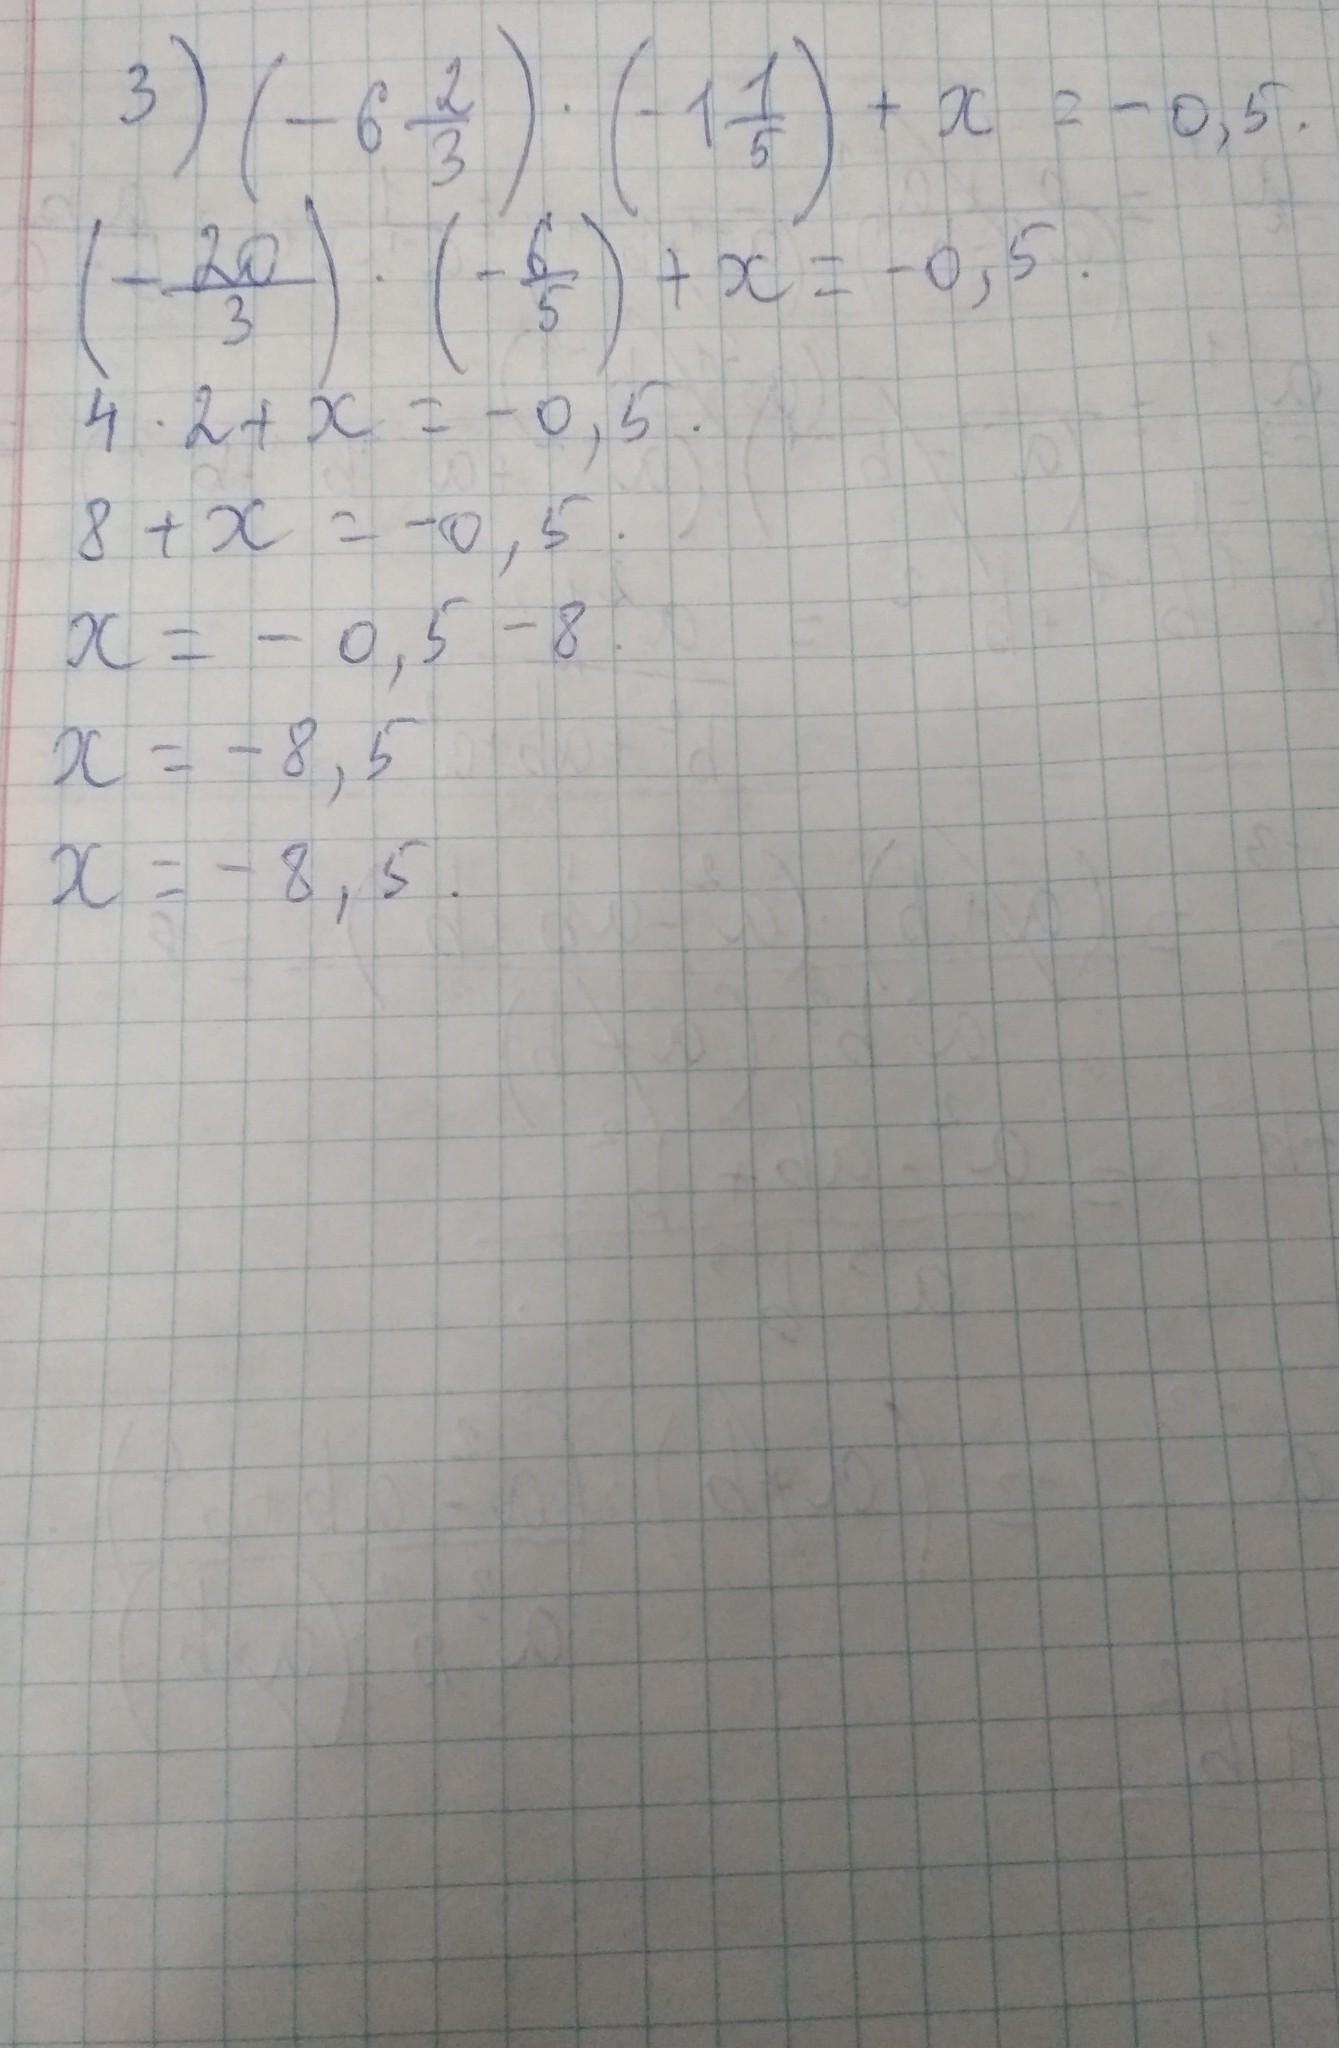 3) (-6 2/3) · (-1 1/5) + x = -0,5.
(-20/3) · (-6/5) + x = -0,5.
4 · 2 + x = -0,5.
8 + x = -0,5.
x = -0,5 - 8.
x = -8,5
x = -8,5.